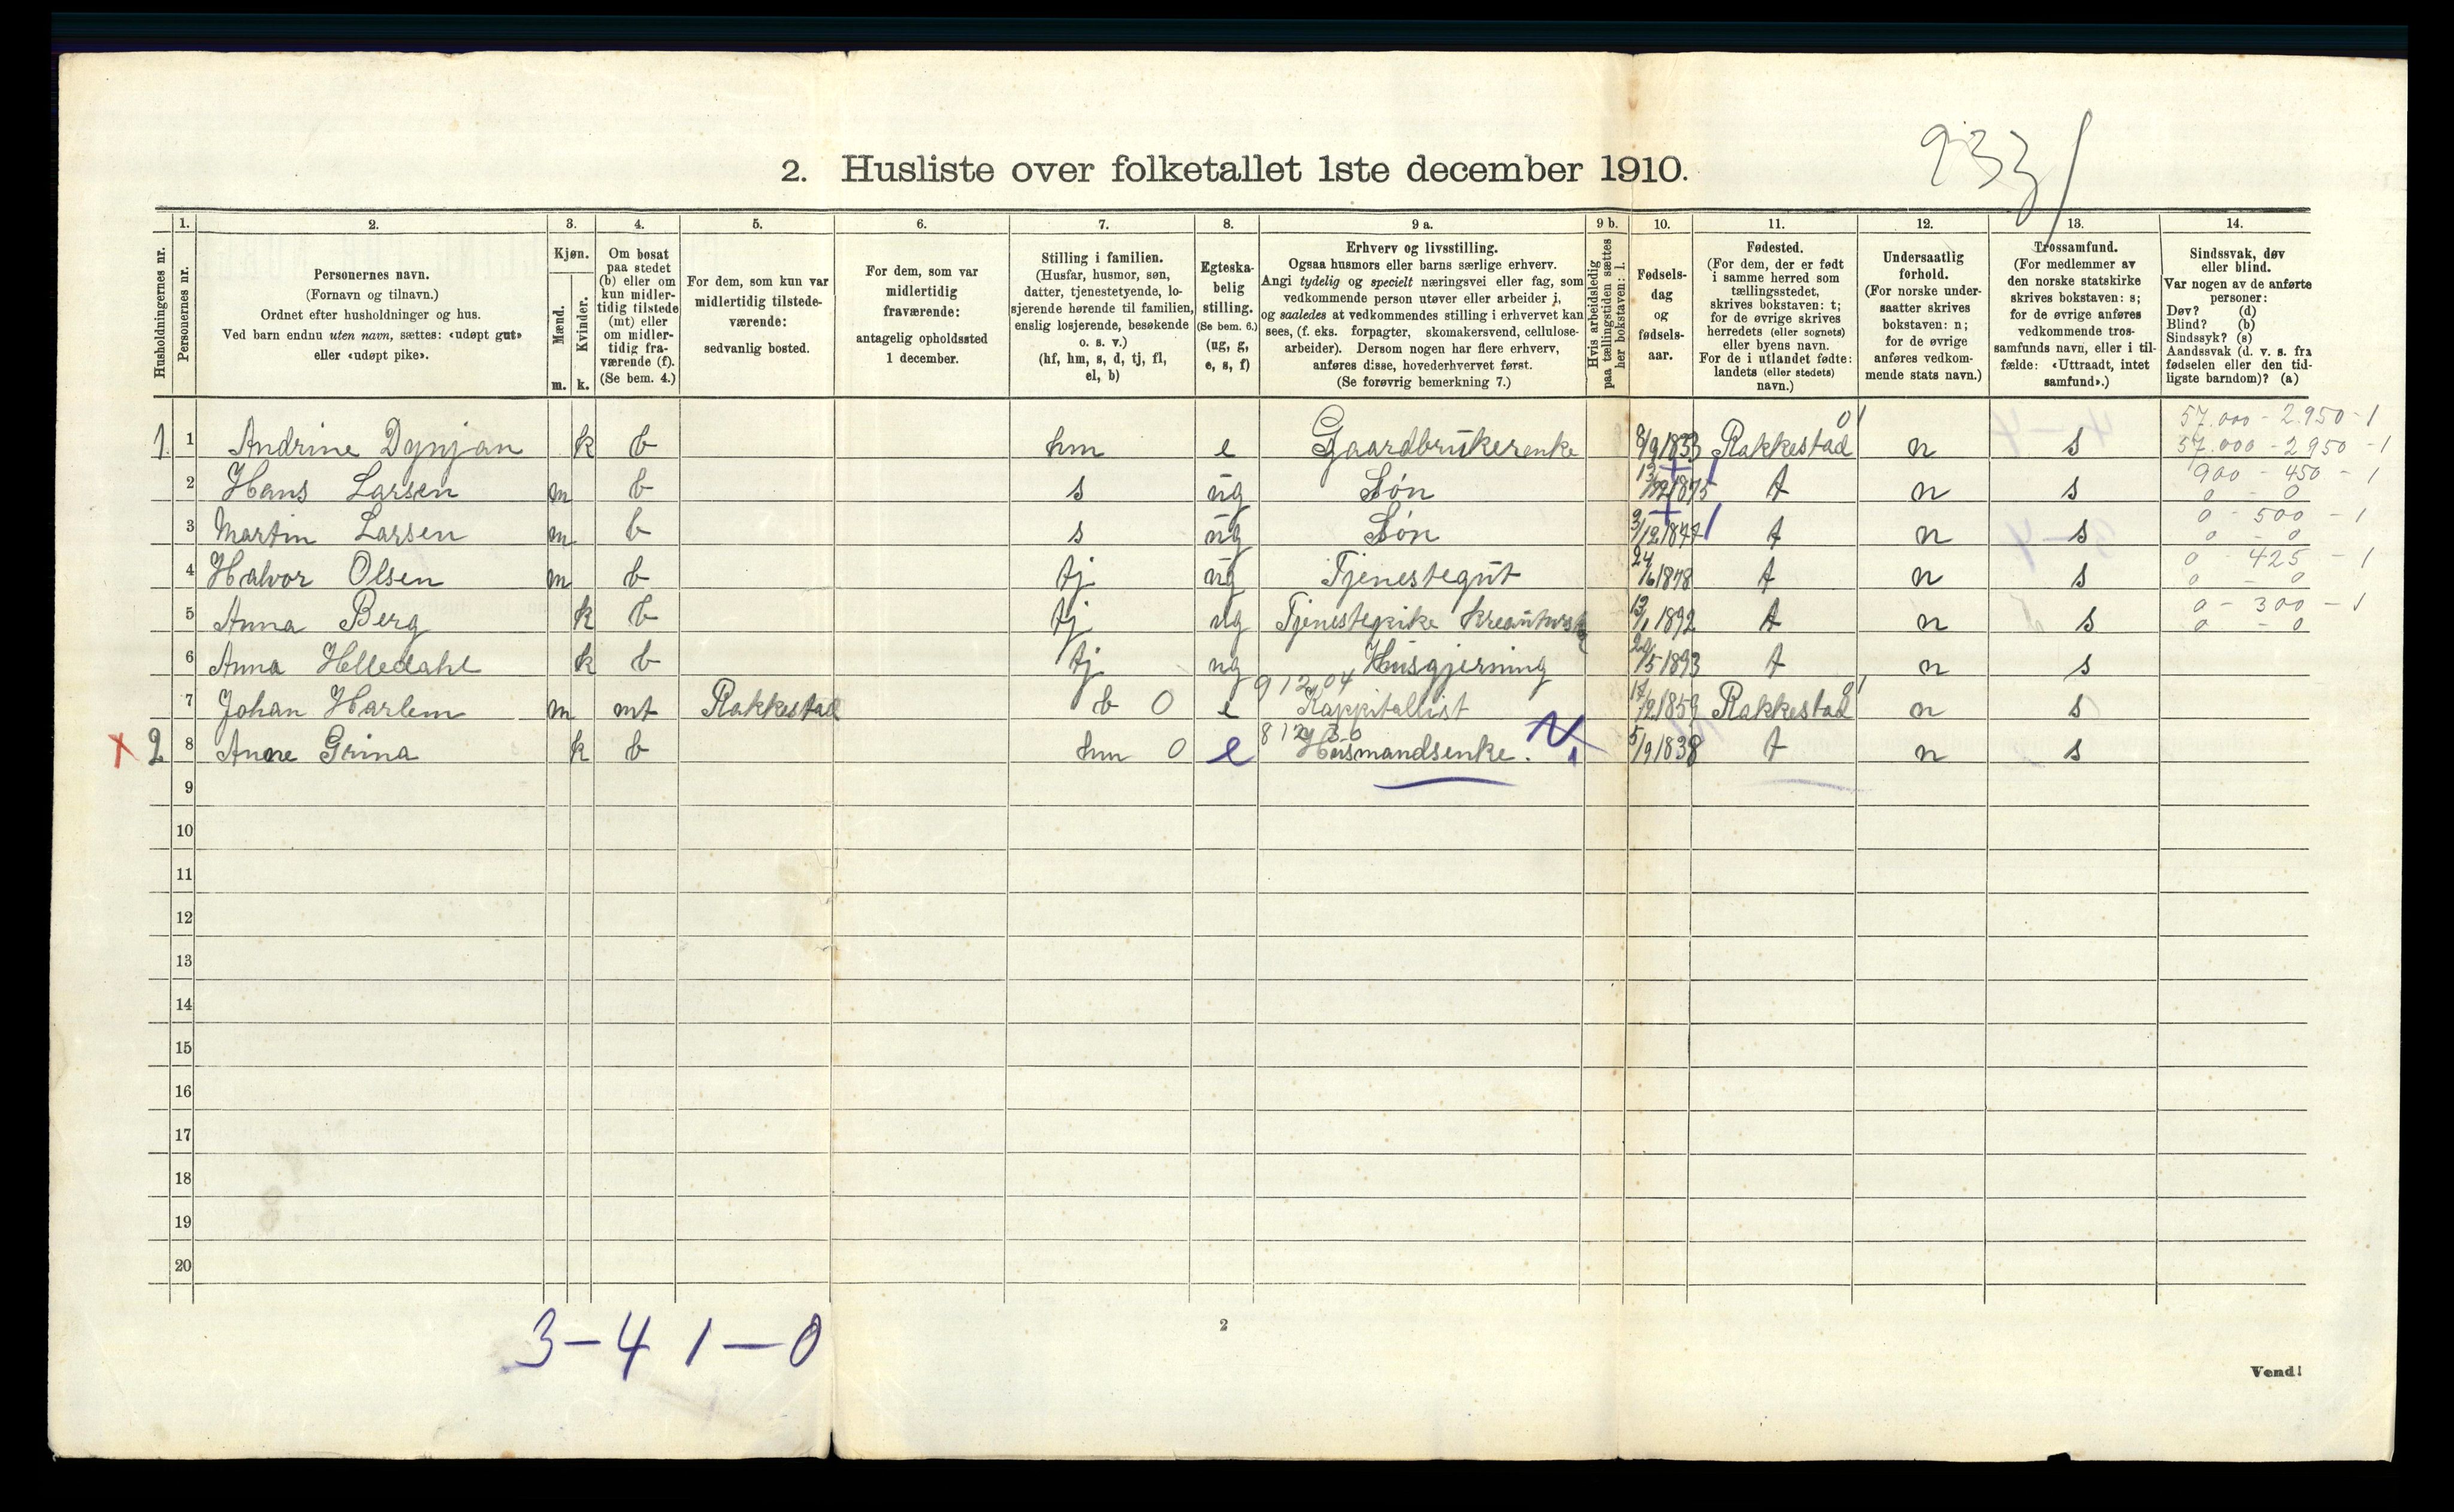 933
2. Husliste over folketallet 1ste december 1910.
Husholdningernes nr.
1.
Personernes nr.
2.
Personernes navn.
(Fornavn og tilnavn.)
Ordnet efter husholdninger og hus.
Ved barn endnu uten navn, sættes: «udøpt gut»
eller «udøpt pike».
3.
Kjøn.
Mænd.
Kvinder.
m. k.
4.
Om bosat
paa stedet
(b) eller om
kun midler-
tidig tilstede
(mt) eller
om midler-
tidig fra-
værende (f).
(Se bem. 4.)
5.
For dem, som kun var
midlertidig tilstede-
værende:
sedvanlig bosted.
6.
For dem, som var
midlertidig
fraværende:
antagelig opholdssted
1 december.
7.
Stilling i familien.
(Husfar, husmor, søn,
datter, tjenestetyende, lo-
sjerende hørende til familien,
enslig losjerende, besøkende
o. s. v.)
(hf, hm, s, d, tj, fl,
el, b)
8.
Egteska-
belig
stilling.
(Se bem. 6.)
(ug, g,
e, s, f)
9 a.
Erhverv og livsstilling.
Ogsaa husmors eller barns særlige erhverv.
Angi tydelig og specielt næringsvei eller fag, som
vedkommende person utøver eller arbeider i,
og saaledes at vedkommendes stilling i erhvervet kan
sees, (f. eks. forpagter, skomakersvend, cellulose-
arbeider). Dersom nogen har flere erhverv,
anføres disse, hovederhvervet først.
(Se forøvrig bemerkning 7.)
9 b.
Hvis arbeidsledig
paa tællingstiden sættes
her bokstaven: l.
10.
Fødsels-
dag
og
fødsels-
aar.
11.
Fødested.
(For dem, der er født
i samme herred som
tællingsstedet,
skrives bokstaven: t;
for de øvrige skrives
herredets (eller sognets)
eller byens navn.
For de i utlandet fødte:
landets (eller stedets)
navn.)
12.
Undersaatlig
forhold.
(For norske under-
saatter skrives
bokstaven: n;
for de øvrige
anføres vedkom-
mende stats navn.)
13.
Trossamfund.
(For medlemmer av
den norske statskirke
skrives bokstaven: s;
for de øvrige anføres
vedkommende tros-
samfunds navn, eller i til-
fælde: «Uttraadt, intet
samfund».)
14.
Sindssvak, døv
eller blind.
Var nogen av de anførte
personer:
Døv? (d)
Blind? (b)
Sindssyk? (s)
Aandssvak (d. v. s. fra
fødselen eller den tid-
ligste barndom)? (a)
57.000 - 2.950 - 1
1 1 Andrine Dynjan k b hm e Gaardbrukerenke 8/9 1833 Rakkestad n s 57.000 - 2950 - 1
900 - 450 - 1
2 Hans Larsen m b s ug Søn 1875 t n s 0 - 0
0 - 500 - 1
3 Martin Larsen m b s ug Søn t n s 0 - 0
0 - 425 - 1
4 Halvor Olsen m b tj ug Tjenestegut 24/6 1878 t n s 0 - 0
0 - 300 - 1
5 Anna Berg k b tj ug Tjenestepike 13/1 1892 t n s 0 - 0
6 Anna Helledahl k b tj ug Husgjerning 1893 t n s
9 12 04
7 Johan Harlem m mt Rakkestad b 0 e Kappitallist 1859 Rakkestad n s
8 12 30
X 2 8 Anne Grina k b hm 0 e Husmandsenke. N 1 5/9 1838 t n s
9
10
11
12
13
14
15
16
17
18
19
20
3 - 4 1 - 0
2
Vend!